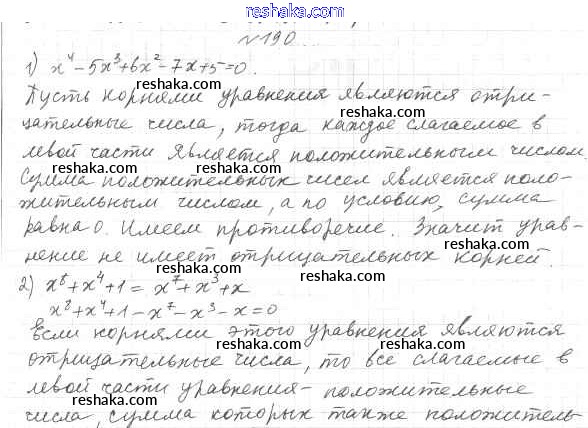 reshak.ru
№190
1) x⁴ - 5x³ + 6x² - 7x + 5 = 0.
Пусть корнями уравнения являются отри-
цательные числа, тогда каждое слагаемое в
левой части является положительным числом.
Сумма положительных чисел является поло-
жительным числом, а по условию, сумма
равна 0. Имеем противоречие. Значит урав-
нение не имеет отрицательных корней.
2) x⁸ + x⁴ + 1 = x⁷ + x³ + x
x⁸ + x⁴ + 1 - x⁷ - x³ - x = 0
Если корнями этого уравнения являются
отрицательные числа, то все слагаемые в
левой части уравнения - положительные
числа, сумма которых также положитель
reshak.ru
reshak.ru
reshak.ru
reshak.ru
reshak.ru
reshak.ru
reshak.ru
reshak.ru
reshak.ru
reshak.ru
reshak.ru
reshak.ru